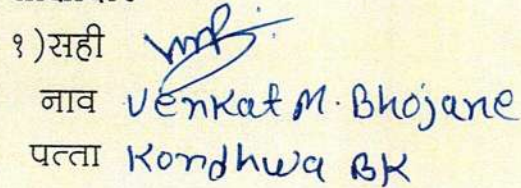 १)सही
नाव Venkat M. Bhojane
पत्ता Kondhwa BK